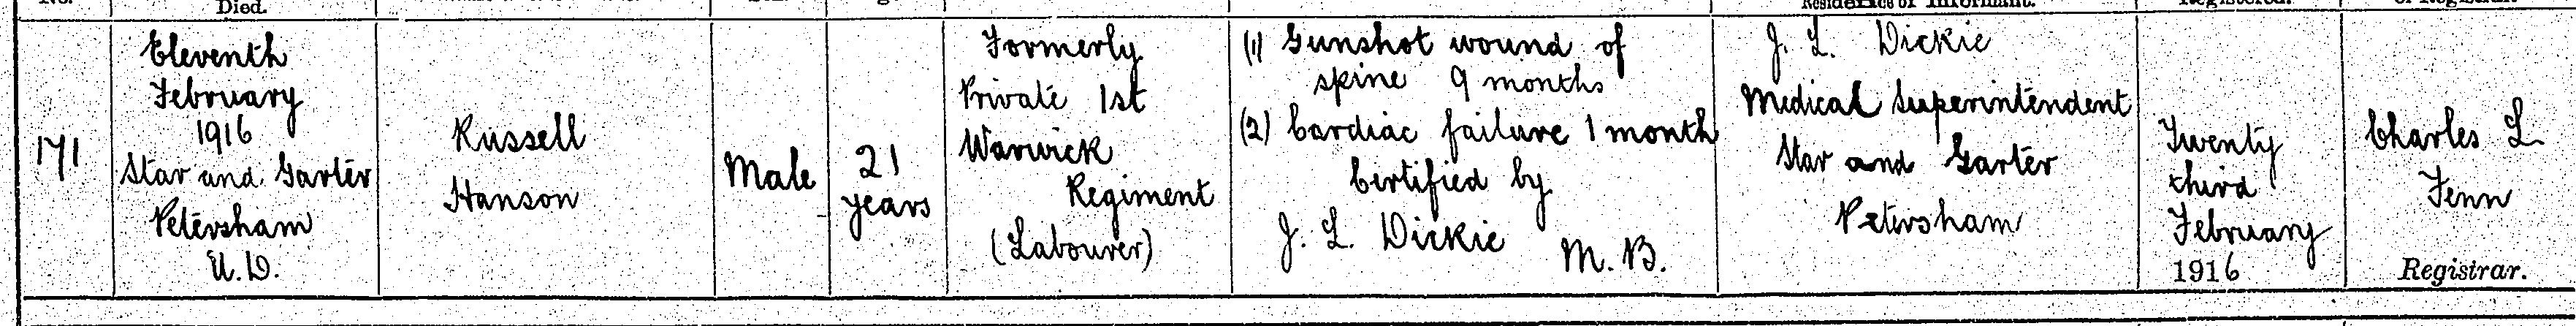 Died.
171
Eleventh
February
1916
Star and Garter
Petersham
U.D.
Russell
Hanson
Male
21
years
Formerly
Private 1st
Warwick
Regiment
(Labourer)
(1) Gunshot wound of
spine 9 months
(2) Cardiac failure 1 month
Certified by
J. L. Dickie M.B.
Residence of Informant.
J. L. Dickie
Medical Superintendent
Star and Garter
Petersham
Registered.
Twenty
third
February
1916
Charles L
Fenn
Registrar.